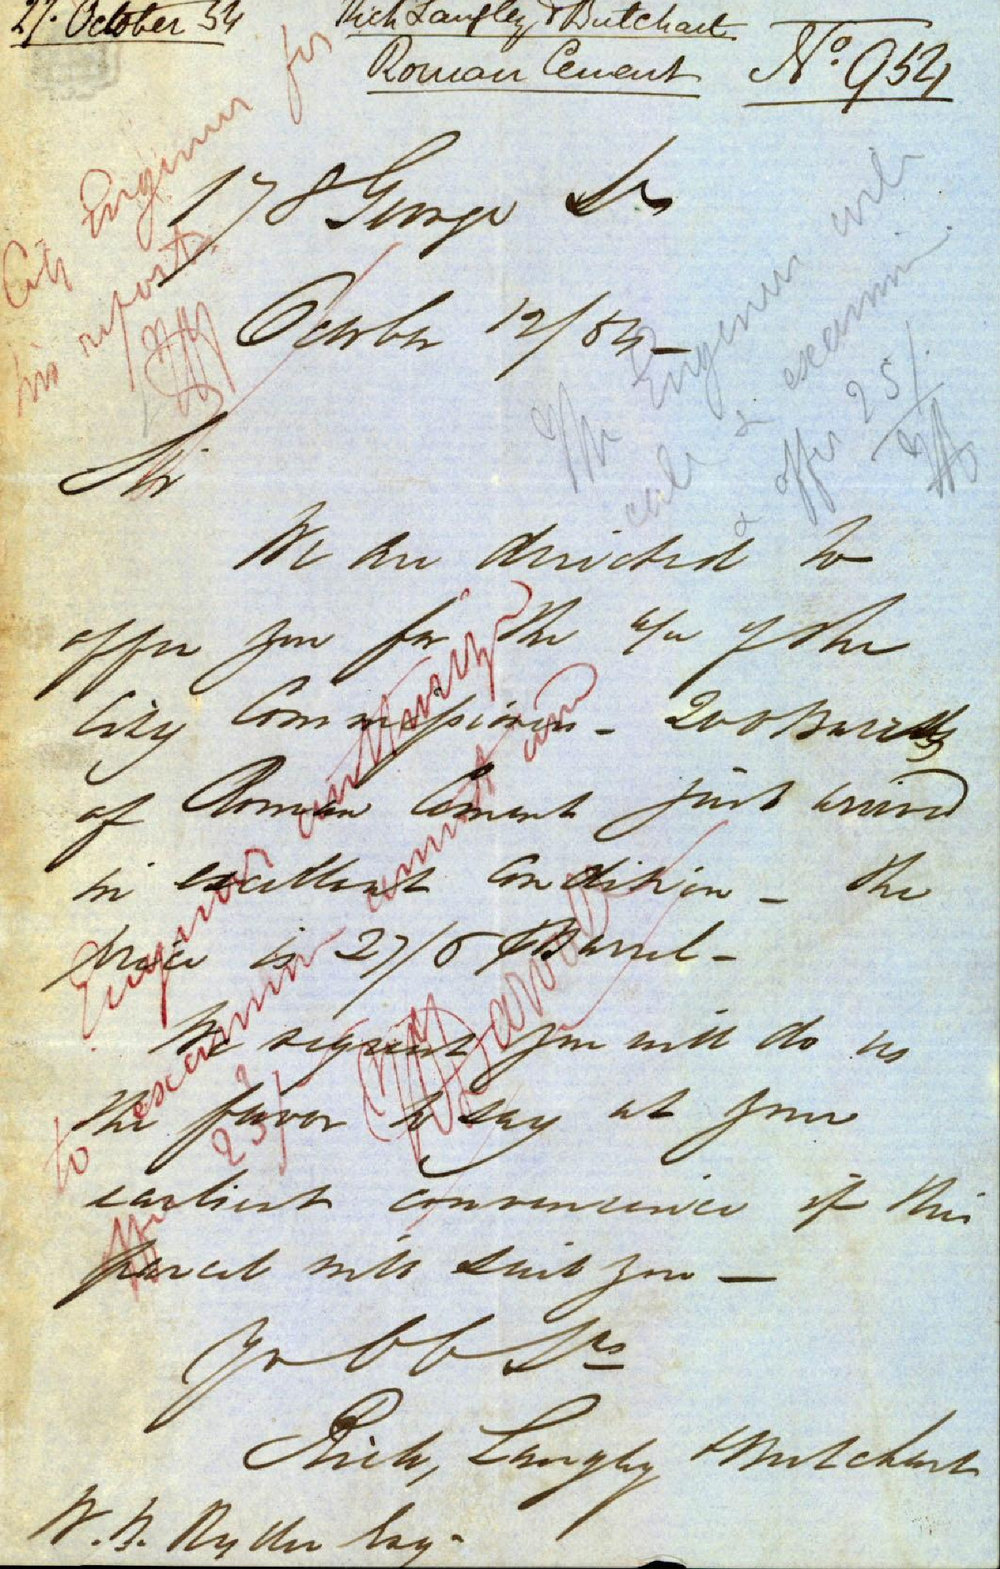 27. October 54
Rich Langley & Butchart
Roman Cement No. 954
City Engineer for
his report
178 George St
October 12/54
Mr Engineer will
call & examine
& offer 25/
Sir
We are directed to
offer you for the use of the
City Commissioners - 200 Barrells
of Roman Cement just arrived
in excellent Condition - the
price is 27/6 ⅌ Barrel -
We request you will do us
the favor to say at your
earliest convenience if this
parcel will suit you -
Engineer authorized
to examine cement and
offer 25/
Yr Ob St
Rich, Langley & Butchart
Esq